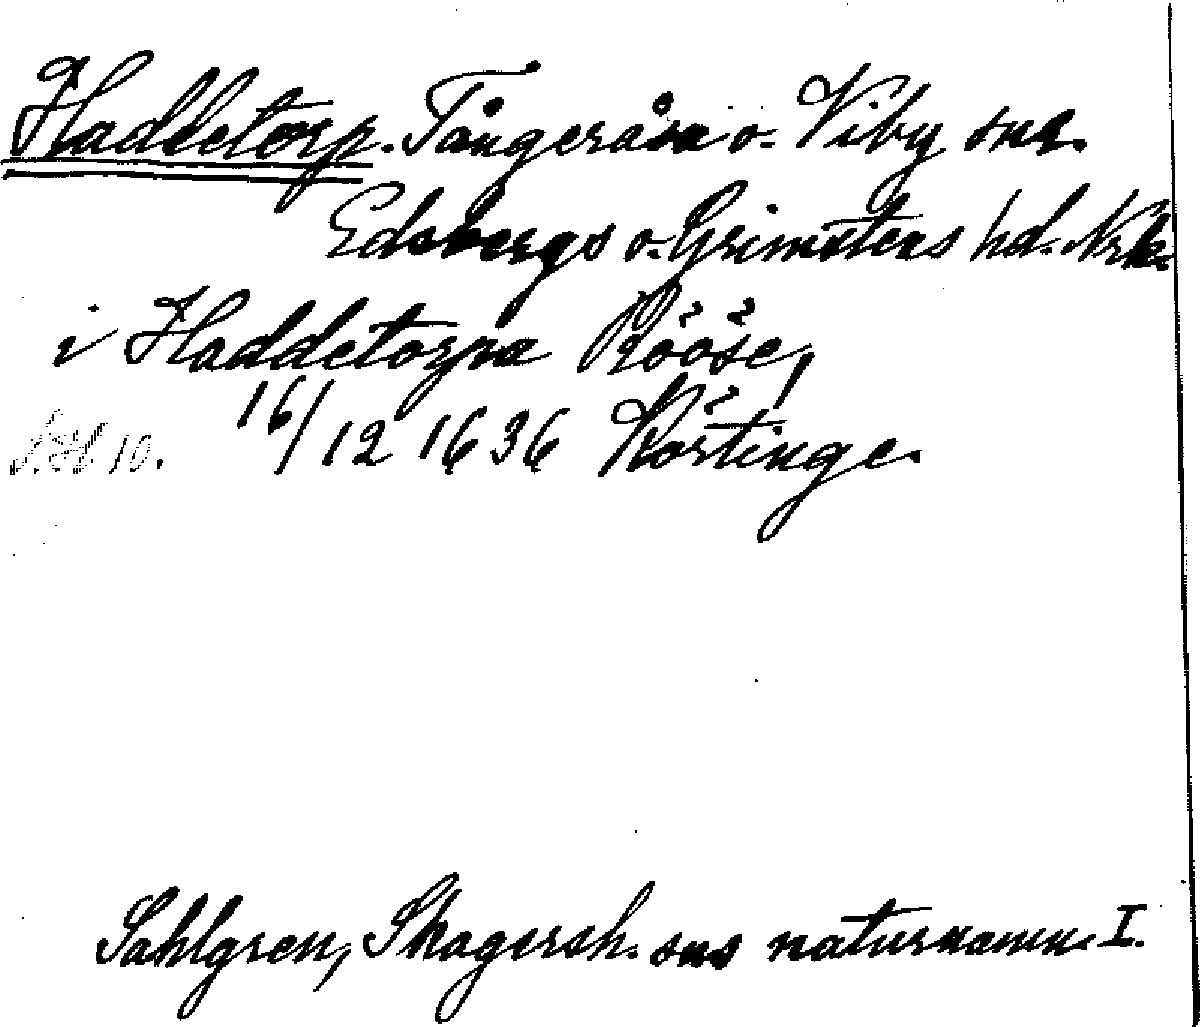 Haddetorp. Tångeråsa o. Viby snr.
Edsbergs o. Grimstens hd. Nrke
i Haddetorpa Rööse,
16/12 1636 Körtinge.
10.
Sahlgren, Skagersh. sns naturnamn I.